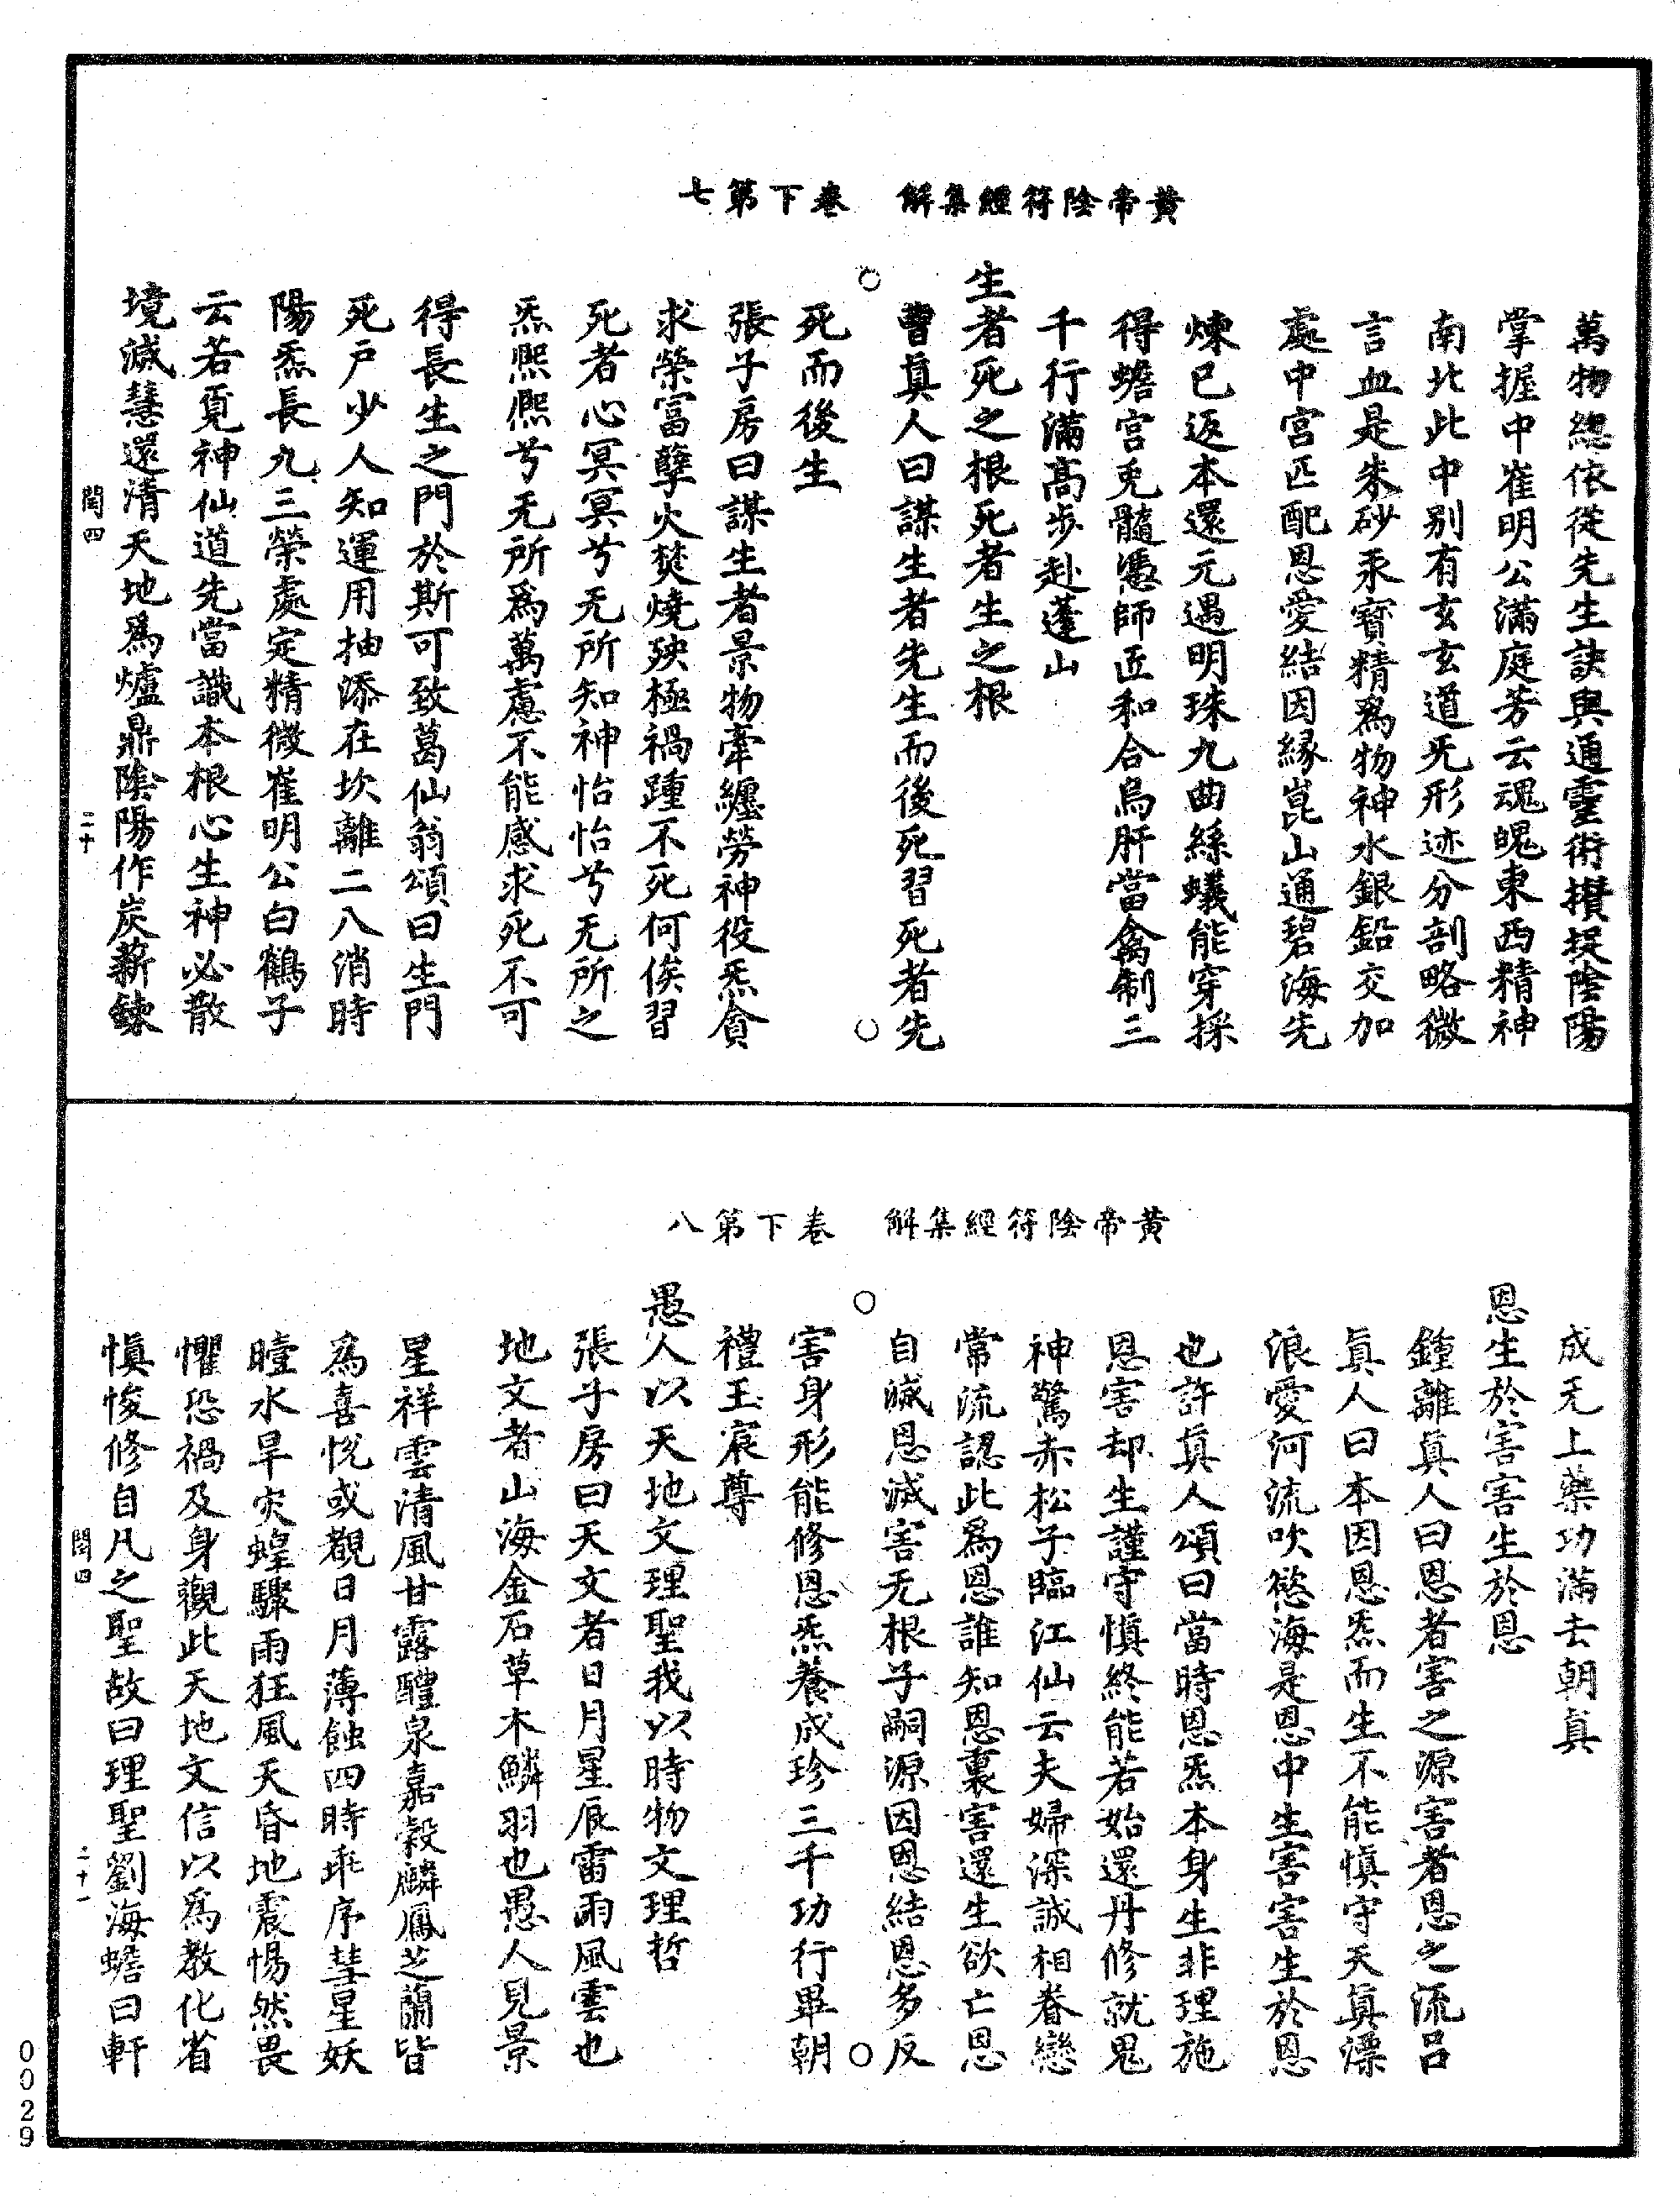 黃帝陰符經集解 卷下第七
萬物總依從先生訣與通靈術攢捉陰陽
掌握中崔明公滿庭芳云魂魄東西精神
南北此中別有玄玄道无形迹分剖略微
言血是朱砂汞寶精爲物神水銀鉛交加
處中宮匹配恩愛結因緣崑山通碧海先
煉已返本還元遇明珠九曲絲蟻能穿採
得蟾宮兎髓憑師匠和合烏肝當禽制三
千行滿高步赴蓬山
生者死之根死者生之根
曹眞人曰謀生者先生而後死習死者先
死而後生
張子房曰謀生者景物牽纏勞神役炁貪
求榮富孽火焚燒殃極禍踵不死何俟習
死者心冥冥兮无所知神怡怡兮无所之
炁熙熙兮无所爲萬慮不能惑求死不可
得長生之門於斯可致葛仙翁頌曰生門
死戶少人知運用抽添在坎離二八消時
陽炁長九三榮處定精微崔明公白鶴子
云若覓神仙道先當識本根心生神必散
境滅慧還清天地爲爐鼎陰陽作炭薪鍊
閏四 二十
黃帝陰符經集解 卷下第八
成无上藥功滿去朝真
恩生於害害生於恩
鍾離眞人曰恩者害之源害者恩之流呂
眞人曰本因恩炁而生不能愼守天眞漂
浪愛河流吹慾海是恩中生害害生於恩
也許眞人頌曰當時恩炁本身生非理施
恩害却生謹守愼終能若始還丹修就鬼
神驚赤松子臨江仙云夫婦深誠相眷戀
常流認此爲恩誰知恩裏害還生欲亡恩
自滅恩滅害无根子嗣源因恩結恩多反
害身形能修恩炁養成珍三千功行畢朝
禮玉宸尊
愚人以天地文理聖我以時物文理哲
張子房曰天文者日月星辰雷雨風雲也
地文者山海金石草木鱗羽也愚人見景
星祥雲清風甘露醴泉嘉穀麟鳳芝蘭皆
爲喜悅或覩日月薄蝕四時乖序彗星妖
曀水旱灾蝗驟雨狂風天昏地震惕然畏
懼恐禍及身觀此天地文信以爲教化省
愼悛修自凡之聖故曰理聖劉海蟾曰軒
閏四 二十一
0029